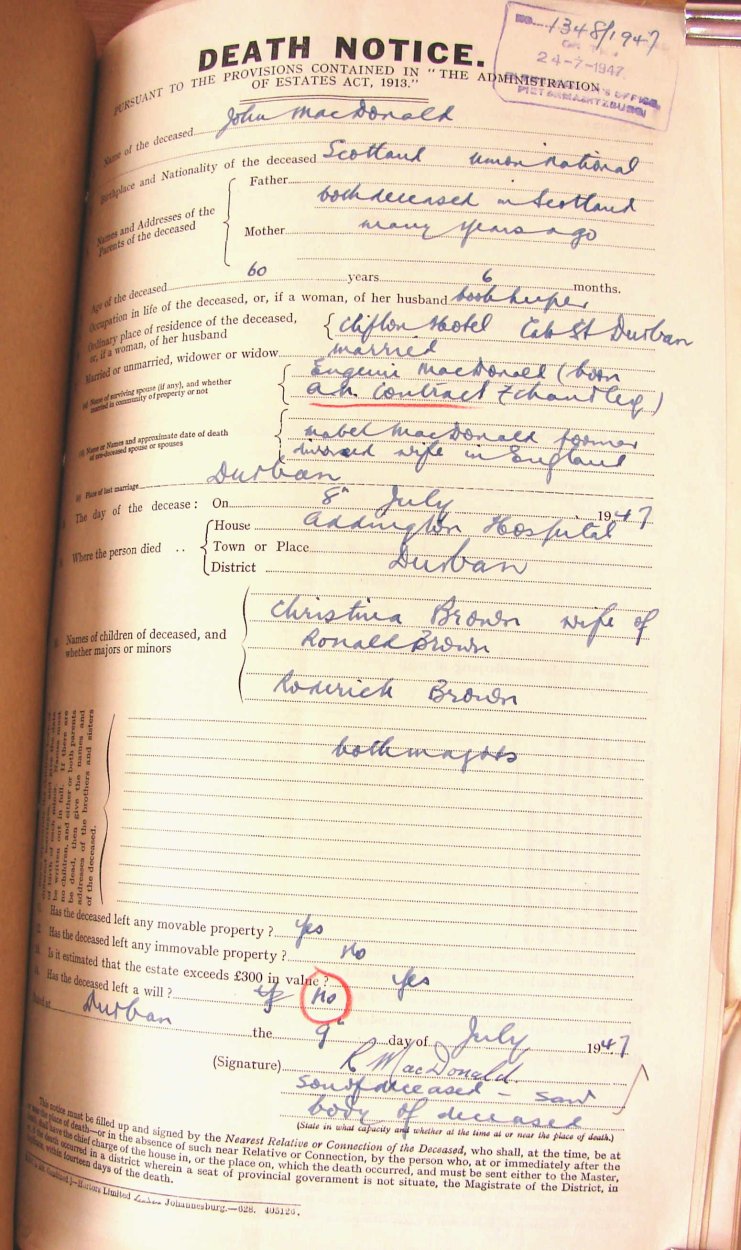 No. 1348/1947
24-7-1947
PIETERMARITZBURG
DEATH NOTICE.
PURSUANT TO THE PROVISIONS CONTAINED IN "THE ADMINISTRATION
OF ESTATES ACT, 1913."
Name of the deceased John MacDonald
Birthplace and Nationality of the deceased Scotland Union National
Names and Addresses of the Parents of the deceased
Father
both deceased in Scotland
Mother many years ago
Age of the deceased 60 years 6 months.
Occupation in life of the deceased, or, if a woman, of her husband bookkeeper
Ordinary place of residence of the deceased, or, if a woman, of her husband Clifton Hotel St Durban
Married or unmarried, widower or widow married
(a) Name of surviving spouse (if any), and whether married in community of property or not Eugenie MacDonald (born
a.n. contract Chandley)
(b) Name or Names and approximate date of death of pre-deceased spouse or spouses Mabel MacDonald former
divorced wife in England
(c) Place of last marriage Durban
The day of the decease: On 8th July 1947
Where the person died ..
House Addington Hospital
Town or Place Durban
District
Names of children of deceased, and whether majors or minors
Christina Brown wife of
Ronald Brown
Roderick Brown
both majors
be written out in full. If there are
no children, and either or both parents
be dead, then give the names and
addresses of the brothers and sisters
of the deceased.
Has the deceased left any movable property? Yes
Has the deceased left any immovable property? No
Is it estimated that the estate exceeds £300 in value? Yes
Has the deceased left a will? No
Dated at Durban the 9th day of July 1947
(Signature) R MacDonald.
son of deceased - saw
body of deceased
(State in what capacity and whether at the time at or near the place of death.)
This notice must be filled up and signed by the Nearest Relative or Connection of the Deceased, who shall, at the time, be at
or near the place of death—or in the absence of such near Relative or Connection, by the person who, at or immediately after the
death shall have the chief charge of the house in, or the place on, which the death occurred, and must be sent either to the Master,
or if the death occurred in a district wherein a seat of provincial government is not situate, the Magistrate of the District, in
duplicate, within fourteen days of the death.
Hortors Limited Johannesburg.—628. 405126.